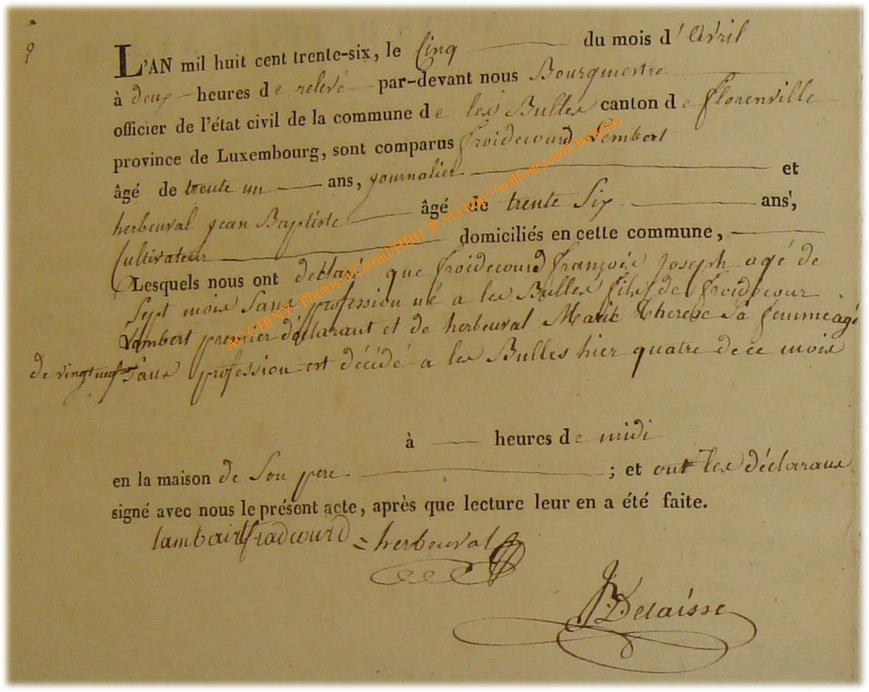 9
L'AN mil huit cent trente-six, le Cinq du mois d'Avril
à deux heures de relevé par-devant nous Bourguestre
officier de l'état civil de la commune de les Bulles canton de florenville
province de Luxembourg, sont comparus froidecourd Lembert
âgé de trente un ans, journalier et
herbeuval jean Baptiste âgé de trente Six ans,
Cultivateur domiciliés en cette commune,
Lesquels nous ont déclaré que froidecourd françois joseph agé de
Sept mois Sans profession né a les Bulles fils de froidecour
Lambert premier déclarant et de herbeuval Marie therese Sa femme agé
de vingt neuf ans Sans profession est décidé a les Bulles hier quatre de ce mois
à heures de midi
en la maison de Son pere ; et ont les déclarans
signé avec nous le présent acte, après que lecture leur en a été faite.
lambairt fradcourd = herbeuval
JB Delaisse